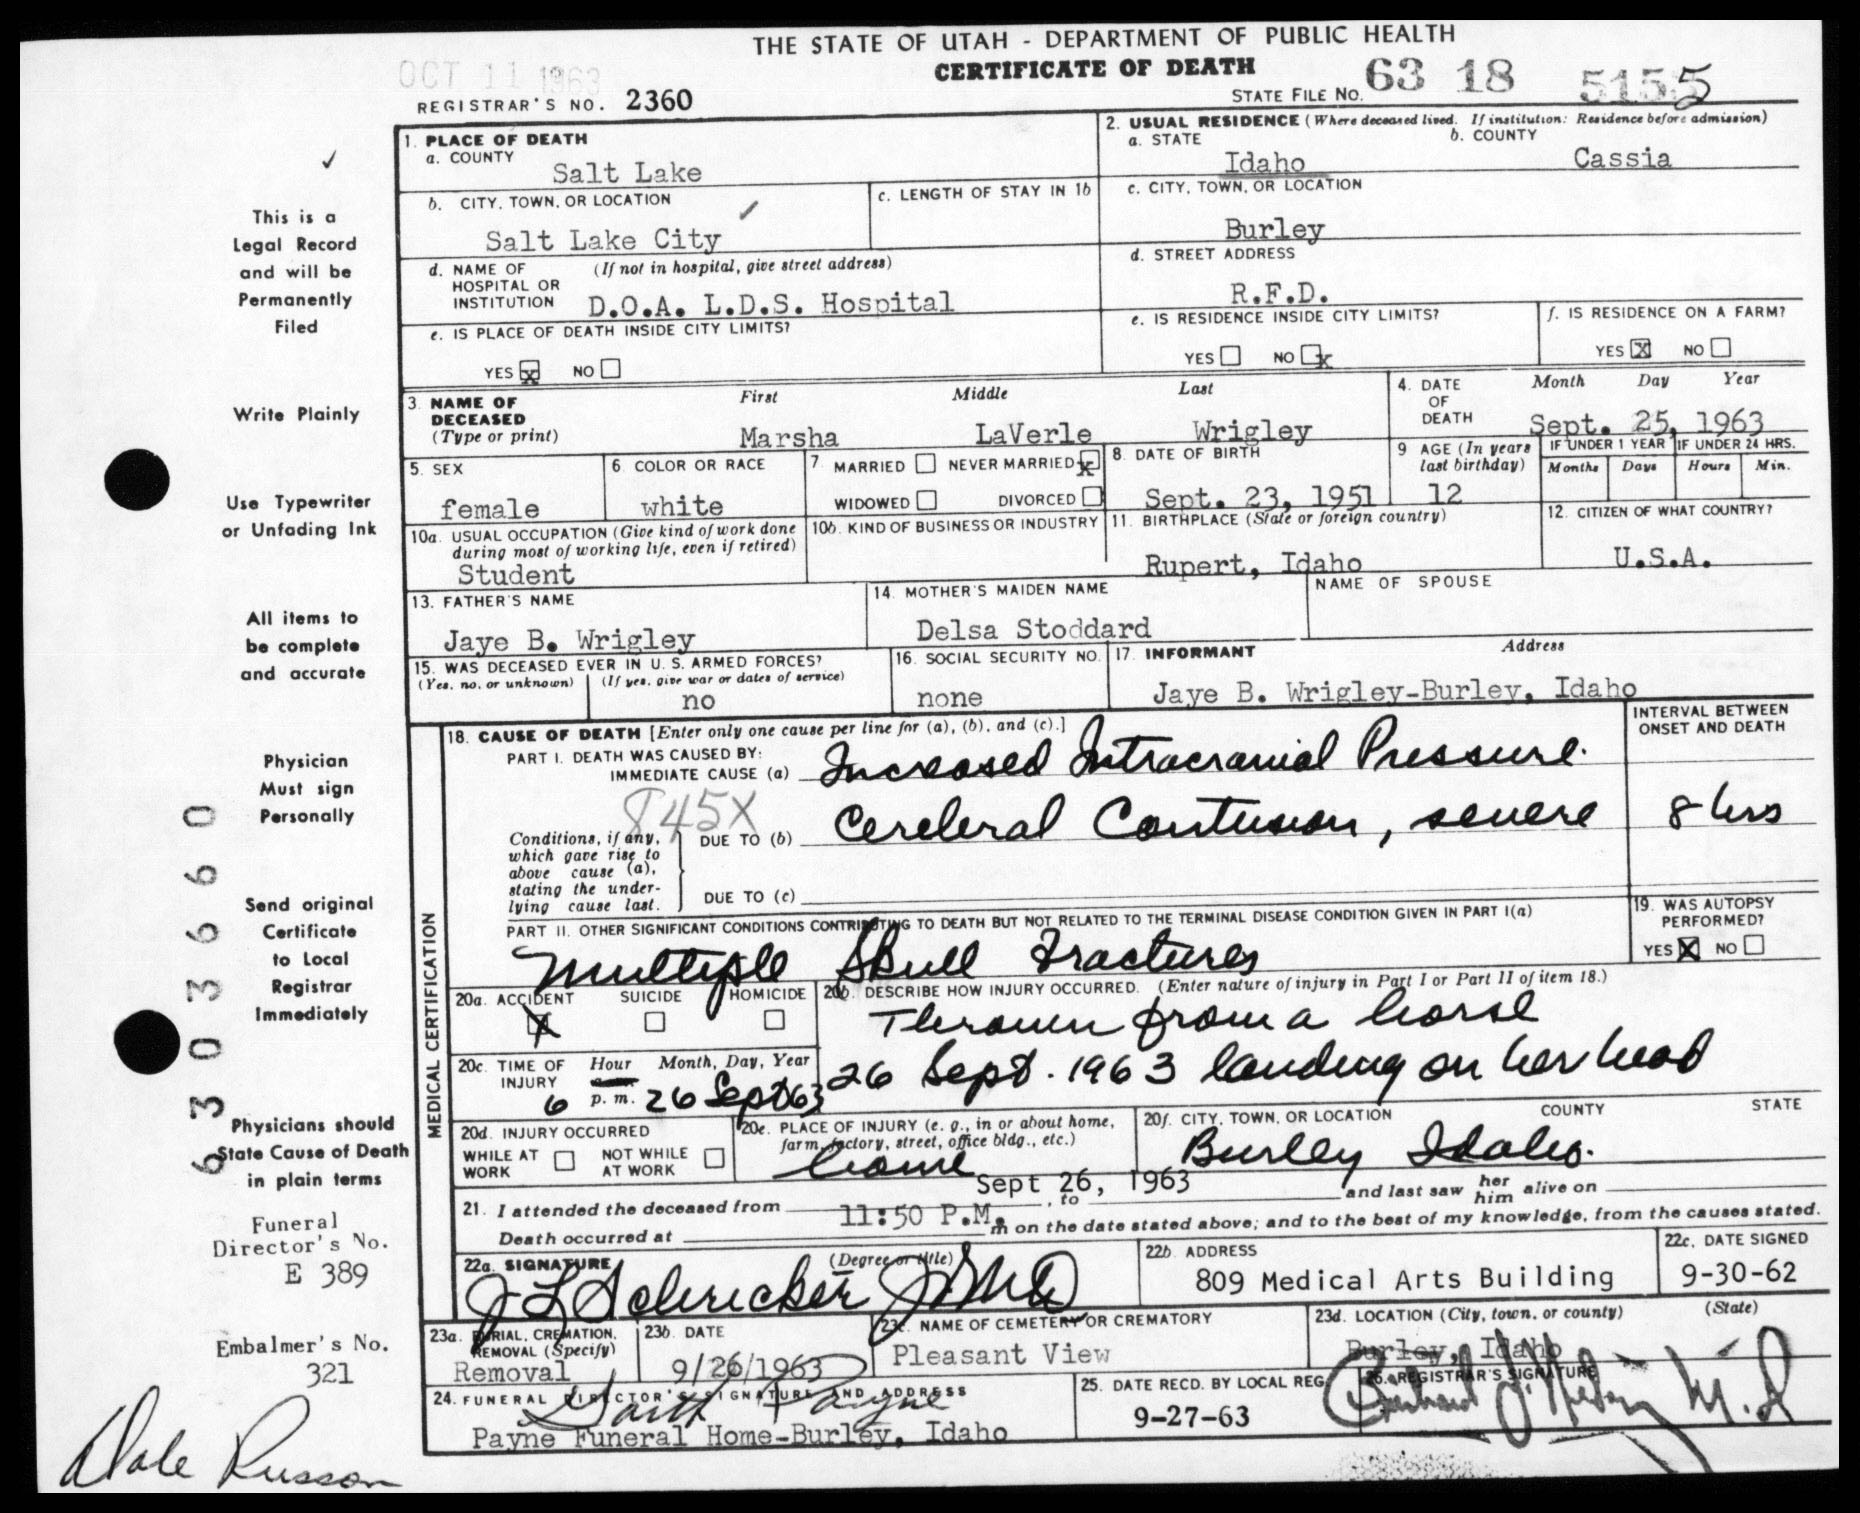 THE STATE OF UTAH - DEPARTMENT OF PUBLIC HEALTH
CERTIFICATE OF DEATH
OCT 11 1963
REGISTRAR'S NO. 2360
STATE FILE NO. 63 18 5155
1. PLACE OF DEATH
a. COUNTY
Salt Lake
2. USUAL RESIDENCE (Where deceased lived. If institution: Residence before admission)
a. STATE b. COUNTY
Idaho Cassia
b. CITY, TOWN, OR LOCATION
Salt Lake City
c. LENGTH OF STAY IN 1b
c. CITY, TOWN, OR LOCATION
Burley
d. NAME OF HOSPITAL OR INSTITUTION (If not in hospital, give street address)
D.O.A. L.D.S. Hospital
d. STREET ADDRESS
R.F.D.
e. IS PLACE OF DEATH INSIDE CITY LIMITS?
YES x NO
e. IS RESIDENCE INSIDE CITY LIMITS?
YES NO x
f. IS RESIDENCE ON A FARM?
YES X NO
3. NAME OF DECEASED (Type or print)
First Middle Last
Marsha LaVerle Wrigley
4. DATE OF DEATH Month Day Year
Sept. 25, 1963
5. SEX
female
6. COLOR OR RACE
white
7. MARRIED NEVER MARRIED x
WIDOWED DIVORCED
8. DATE OF BIRTH
Sept. 23, 1951
9 AGE (In years last birthday)
12
IF UNDER 1 YEAR IF UNDER 24 HRS.
Months Days Hours Min.
10a. USUAL OCCUPATION (Give kind of work done during most of working life, even if retired)
Student
10b. KIND OF BUSINESS OR INDUSTRY
11. BIRTHPLACE (State or foreign country)
Rupert, Idaho
12. CITIZEN OF WHAT COUNTRY?
U.S.A.
13. FATHER'S NAME
Jaye B. Wrigley
14. MOTHER'S MAIDEN NAME
Delsa Stoddard
NAME OF SPOUSE
15. WAS DECEASED EVER IN U. S. ARMED FORCES?
(Yes, no, or unknown) (If yes, give war or dates of service)
no
16. SOCIAL SECURITY NO.
none
17. INFORMANT Address
Jaye B. Wrigley-Burley, Idaho
MEDICAL CERTIFICATION
18. CAUSE OF DEATH [Enter only one cause per line for (a), (b), and (c).]
PART I. DEATH WAS CAUSED BY:
IMMEDIATE CAUSE (a) Increased Intracranial Pressure.
INTERVAL BETWEEN ONSET AND DEATH
845X
Conditions, if any, which gave rise to above cause (a), stating the underlying cause last.
DUE TO (b) Cerebral Contusion, severe
8 hrs
DUE TO (c)
PART II. OTHER SIGNIFICANT CONDITIONS CONTRIBUTING TO DEATH BUT NOT RELATED TO THE TERMINAL DISEASE CONDITION GIVEN IN PART I(a)
Multiple Skull Fractures
19. WAS AUTOPSY PERFORMED?
YES X NO
20a. ACCIDENT SUICIDE HOMICIDE
X
20b. DESCRIBE HOW INJURY OCCURRED. (Enter nature of injury in Part I or Part II of item 18.)
Thrown from a horse
26 Sept. 1963 landing on her head
20c. TIME OF INJURY Hour Month, Day, Year
6 a.m. p. m. 26 Sept 63
20d. INJURY OCCURRED
WHILE AT WORK NOT WHILE AT WORK
20e. PLACE OF INJURY (e. g., in or about home, farm, factory, street, office bldg., etc.)
home
20f. CITY, TOWN, OR LOCATION COUNTY STATE
Burley Idaho.
21. I attended the deceased from Sept 26, 1963, to and last saw her him alive on
Death occurred at 11:50 P.M. m on the date stated above; and to the best of my knowledge, from the causes stated.
22a. SIGNATURE (Degree or title)
J L Schricker Jr. MD
22b. ADDRESS
809 Medical Arts Building
22c. DATE SIGNED
9-30-62
23a. BURIAL, CREMATION, REMOVAL (Specify)
Removal
23b. DATE
9/26/1963
23c. NAME OF CEMETERY OR CREMATORY
Pleasant View
23d. LOCATION (City, town, or county) (State)
Burley, Idaho
24. FUNERAL DIRECTOR'S SIGNATURE AND ADDRESS
Payne
Payne Funeral Home-Burley, Idaho
25. DATE RECD. BY LOCAL REG.
9-27-63
26. REGISTRAR'S SIGNATURE
M.D
This is a
Legal Record
and will be
Permanently
Filed
Write Plainly
Use Typewriter
or Unfading Ink
All items to
be complete
and accurate
Physician
Must sign
Personally
Send original
Certificate
to Local
Registrar
Immediately
Physicians should
State Cause of Death
in plain terms
Funeral
Director's No.
E 389
Embalmer's No.
321
Dale Russon
6303660